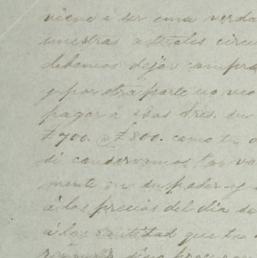 viene a ser una verda
nuestras actuales circu
debemos dejar
y por otra parte no veo
pagar a esos tres. su
£700. a £800. como tu
si conservamos las va
mente en su poder y
a los precios del dia de
a la cantidad que tu